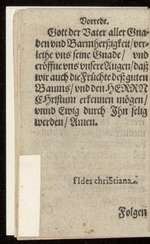 Vorrede.
Gott der Vater aller Gna-
den vnd Barmhertzigkeit / ver-
leihe vns seine Gnade / vnd
eröffne vns vnsere Augen / daß
wir auch die Früchte deß guten
Baums / vnd den HERRN
CHristum erkennen mögen /
vnnd Ewig durch Ihn selig
werden / Amen.
fIdes chriStiana
Folgen